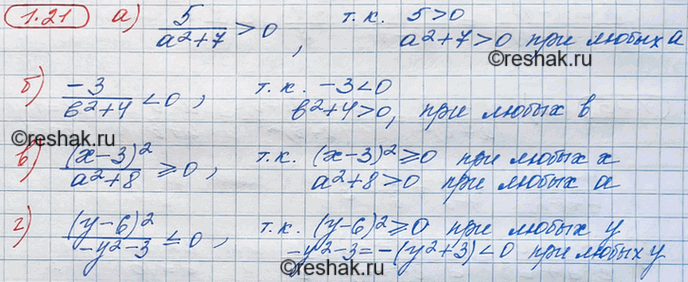 1.21 а) 5/(a²+7) > 0, т.к. 5>0
a²+7>0 при любых a
б) -3/(b²+4) < 0, т.к. -3<0
b²+4>0, при любых b
©reshak.ru
в) (x-3)²/(a²+8) ⩾ 0, т.к. (x-3)²⩾0 при любых x
a²+8>0 при любых a
©reshak.ru
г) (y-6)²/(-y²-3) ≤ 0, т.к. (y-6)²⩾0 при любых y
-y²-3=-(y²+3)<0 при любых y
©reshak.ru